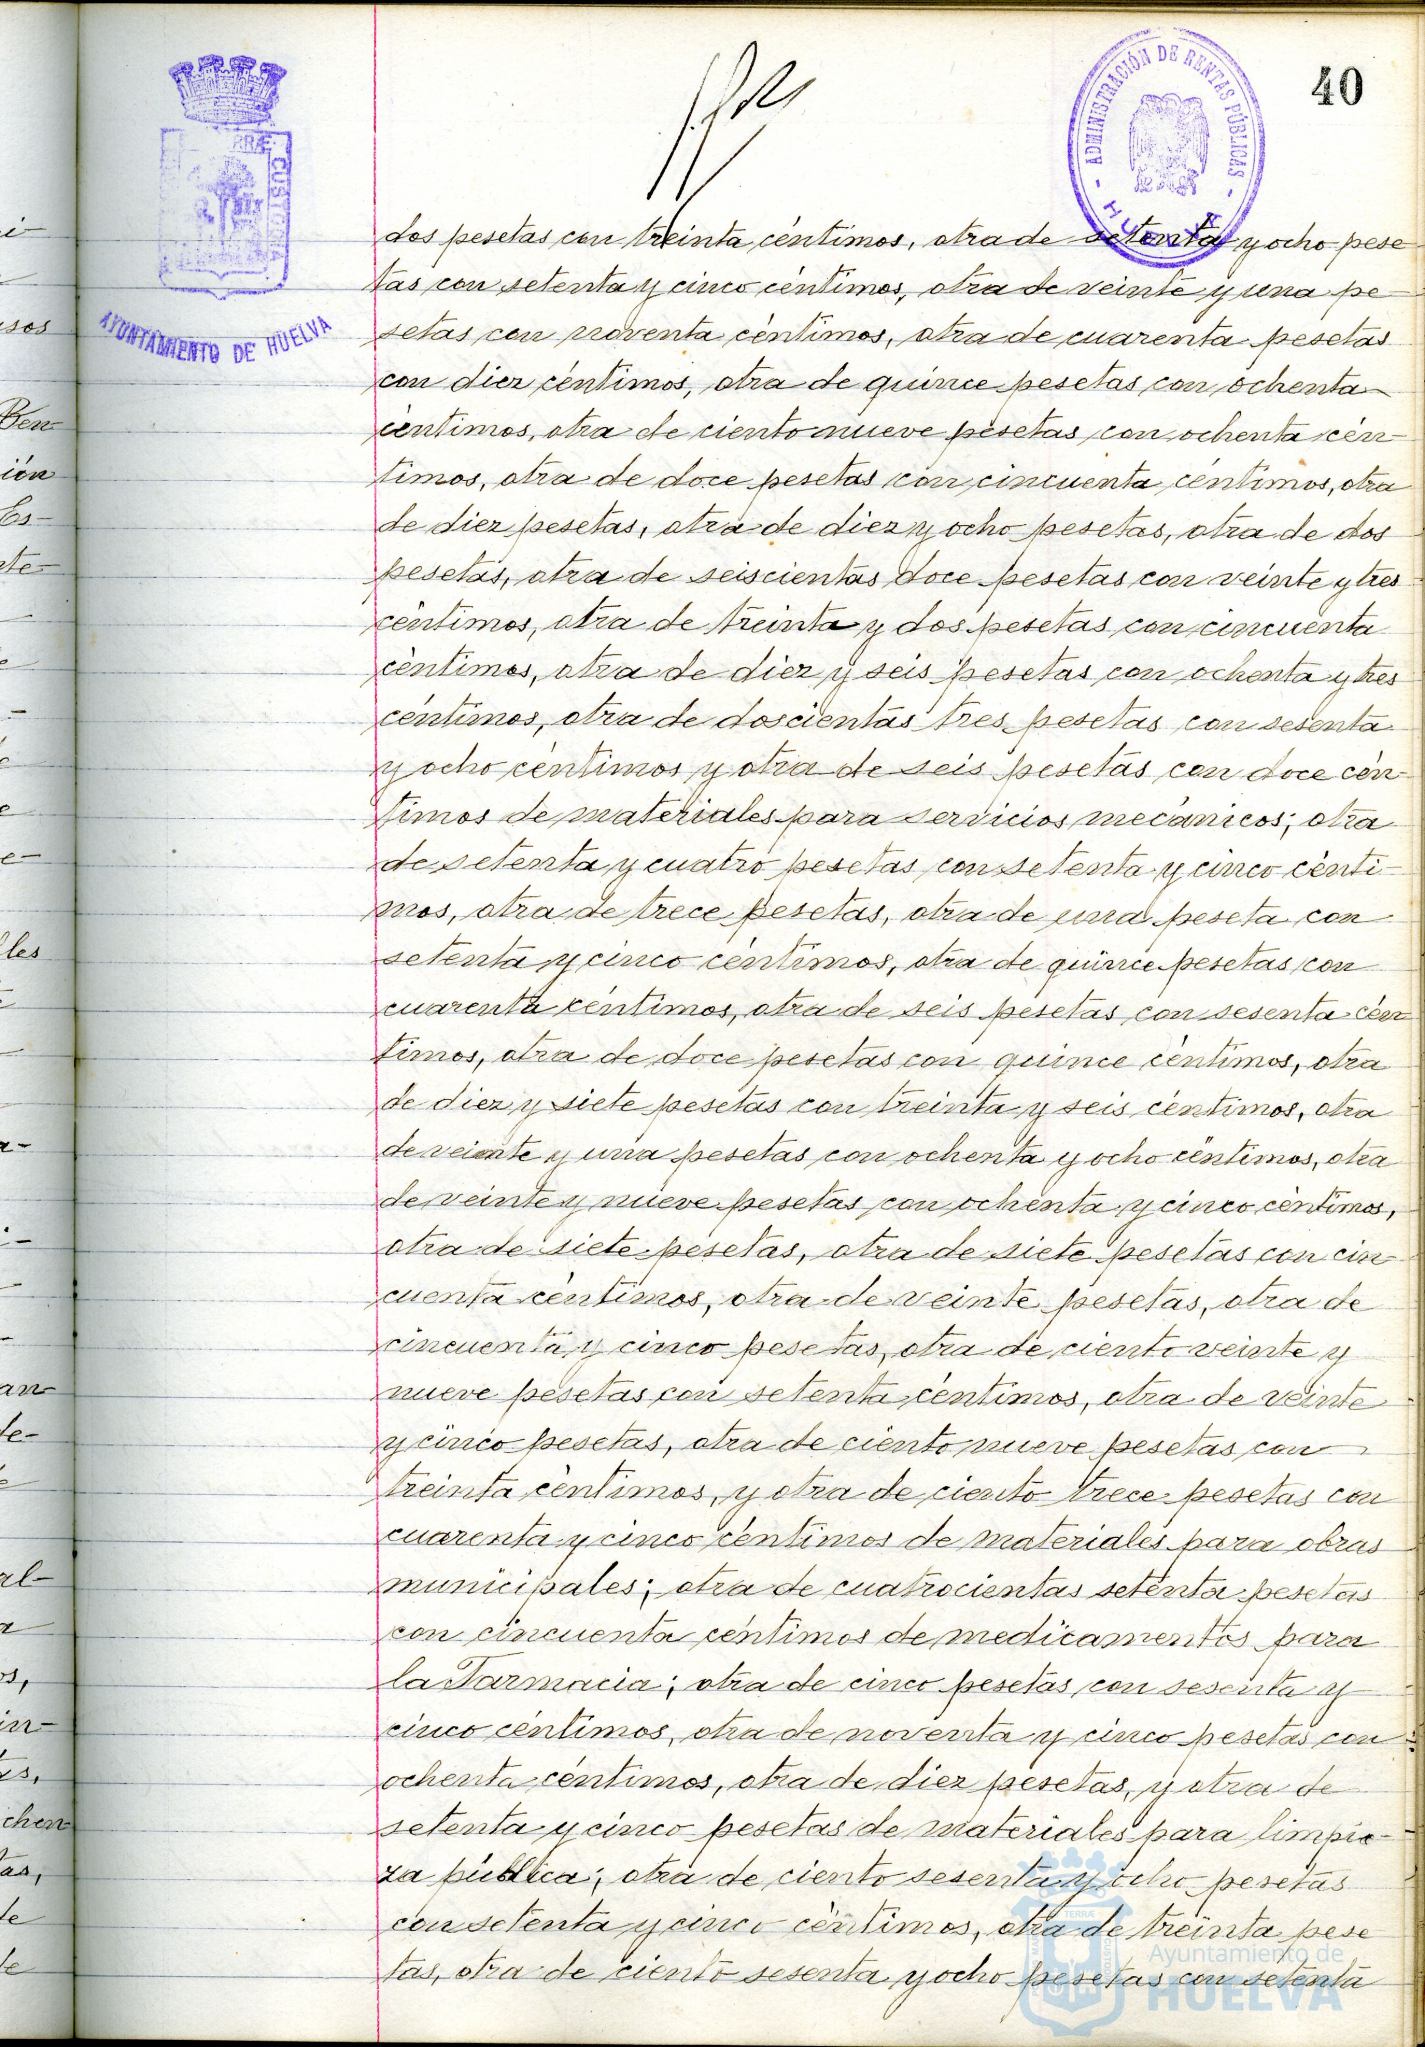 40
ADMINISTRACIÓN DE RENTAS PÚBLICAS
HUELVA
CUSTODIA
AYUNTAMIENTO DE HUELVA
dos pesetas con treinta céntimos, otra de setenta y ocho pese
tas con setenta y cinco céntimos, otra de veinte y una pe
setas con noventa céntimos, otra de cuarenta pesetas
con diez céntimos, otra de quince pesetas con ochenta
céntimos, otra de ciento nueve pesetas con ochenta cén-
timos, otra de doce pesetas con cincuenta céntimos, otra
de diez pesetas, otra de diez y ocho pesetas, otra de dos
pesetas, otra de seiscientas doce pesetas con veinte y tres
céntimos, otra de treinta y dos pesetas con cincuenta
céntimos, otra de diez y seis pesetas con ochenta y tres
céntimos, otra de doscientas tres pesetas con sesenta
y ocho céntimos y otra de seis pesetas con doce cén-
timos de materiales para servicios mecánicos; otra
de setenta y cuatro pesetas con setenta y cinco cénti-
mos, otra de trece pesetas, otra de una peseta con
setenta y cinco céntimos, otra de quince pesetas con
cuarenta céntimos, otra de seis pesetas con sesenta cén
timos, otra de doce pesetas con quince céntimos, otra
de diez y siete pesetas con treinta y seis céntimos, otra
de veinte y una pesetas con ochenta y ocho céntimos, otra
de veinte y nueve pesetas con ochenta y cinco céntimos,
otra de siete pesetas, otra de siete pesetas con cin
cuenta céntimos, otra de veinte pesetas, otra de
cincuenta y cinco pesetas, otra de ciento veinte y
nueve pesetas con setenta céntimos, otra de veinte
y cinco pesetas, otra de ciento nueve pesetas con
treinta céntimos, y otra de ciento trece pesetas con
cuarenta y cinco céntimos de materiales para obras
municipales; otra de cuatrocientas setenta pesetas
con cincuenta céntimos de medicamentos para
la Farmacia; otra de cinco pesetas con sesenta y
cinco céntimos, otra de noventa y cinco pesetas con
ochenta céntimos, otra de diez pesetas, y otra de
setenta y cinco pesetas de materiales para limpie-
za pública; otra de ciento sesenta y ocho pesetas
con setenta y cinco céntimos, otra de treinta pese
tas, otra de ciento sesenta y ocho pesetas con setenta
Ayuntamiento de
HUELVA